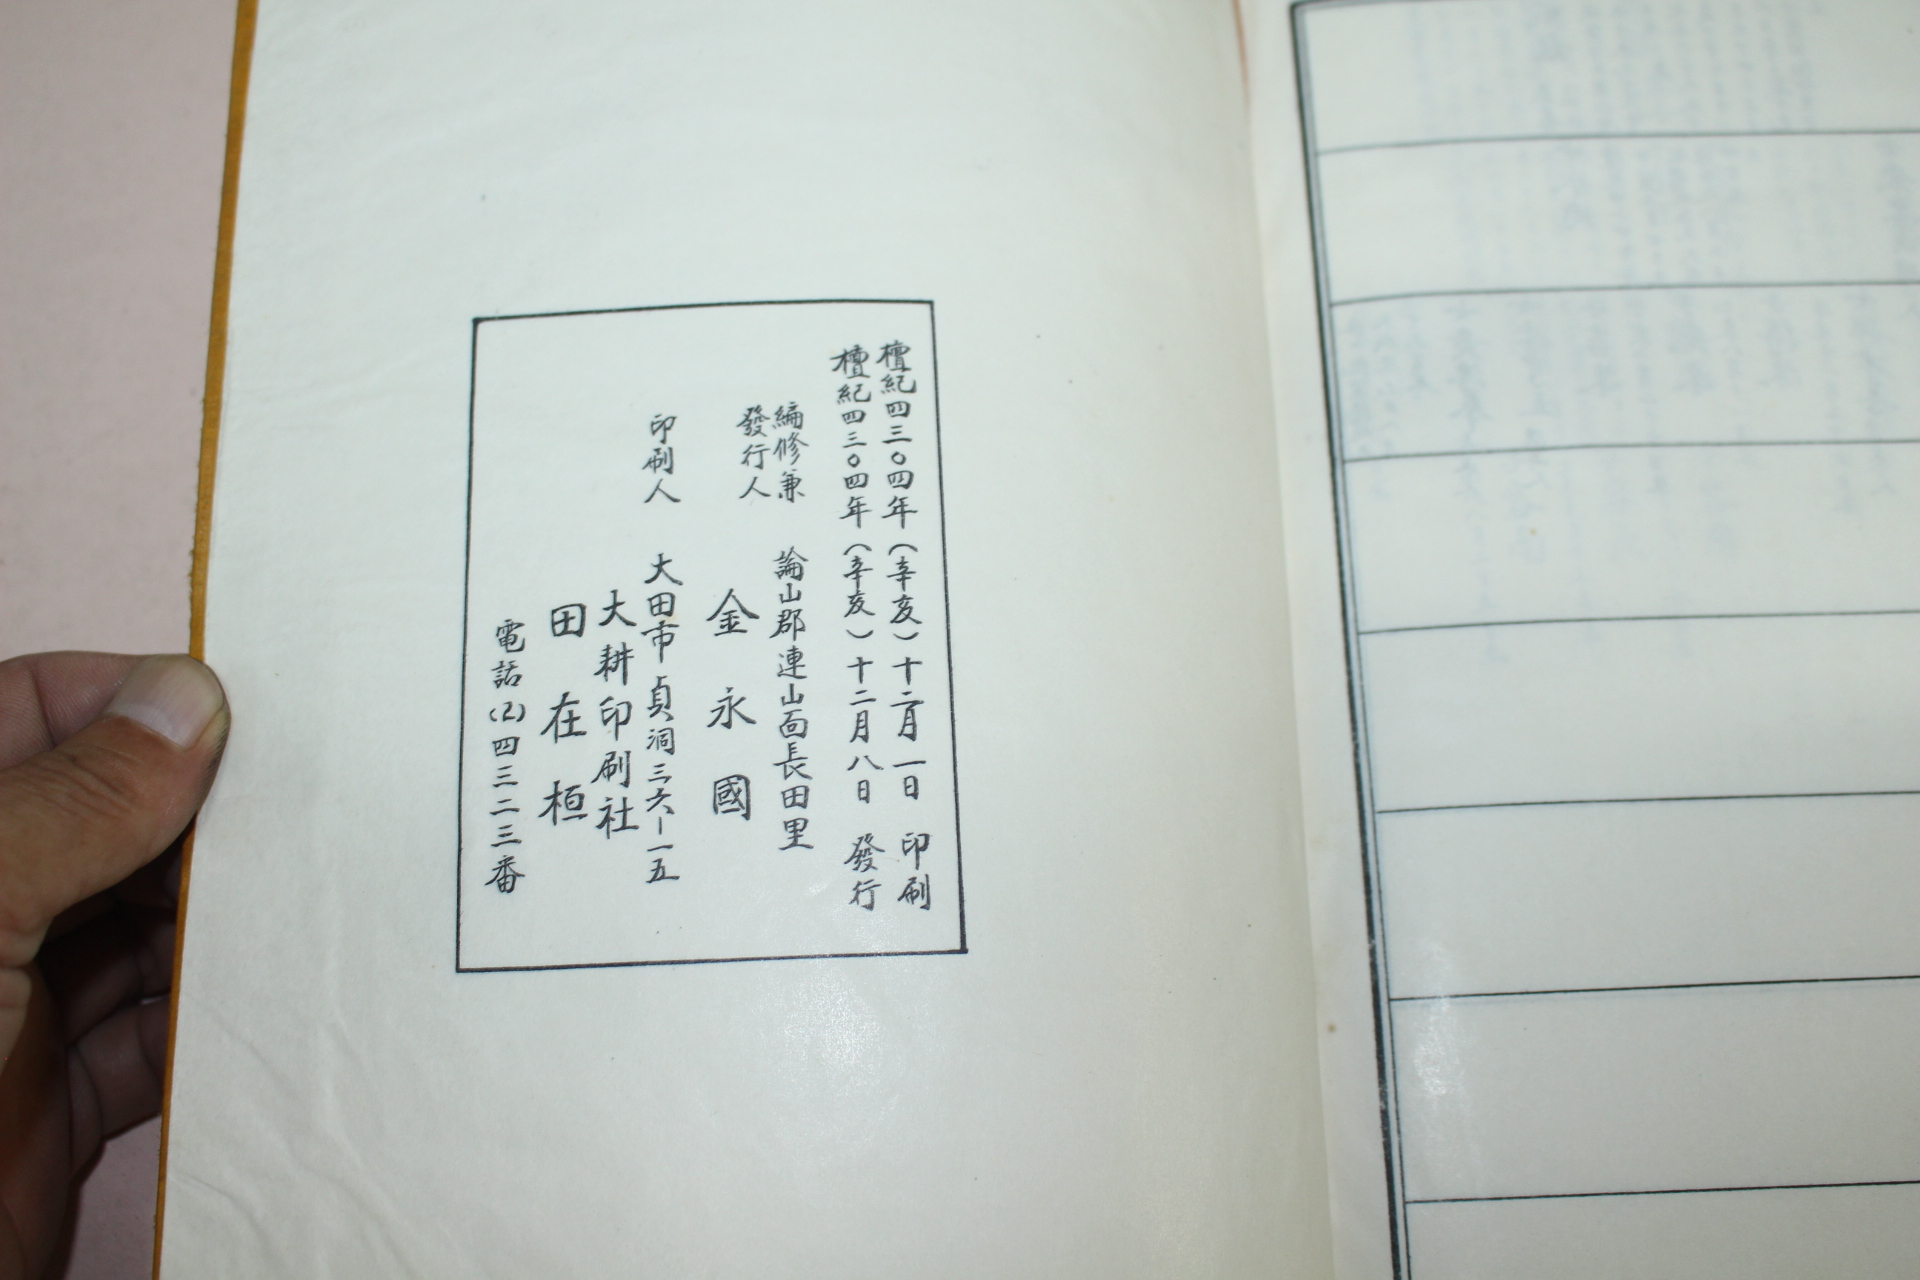 檀紀四三〇四年(辛亥)十二月一日 印刷
檀紀四三〇四年(辛亥)十二月八日 發行
編修兼
發行人
論山郡連山面長田里
金永國
印刷人 大田市貞洞三六-一五
大耕印刷社
田在桓
電話(2)四三二三番